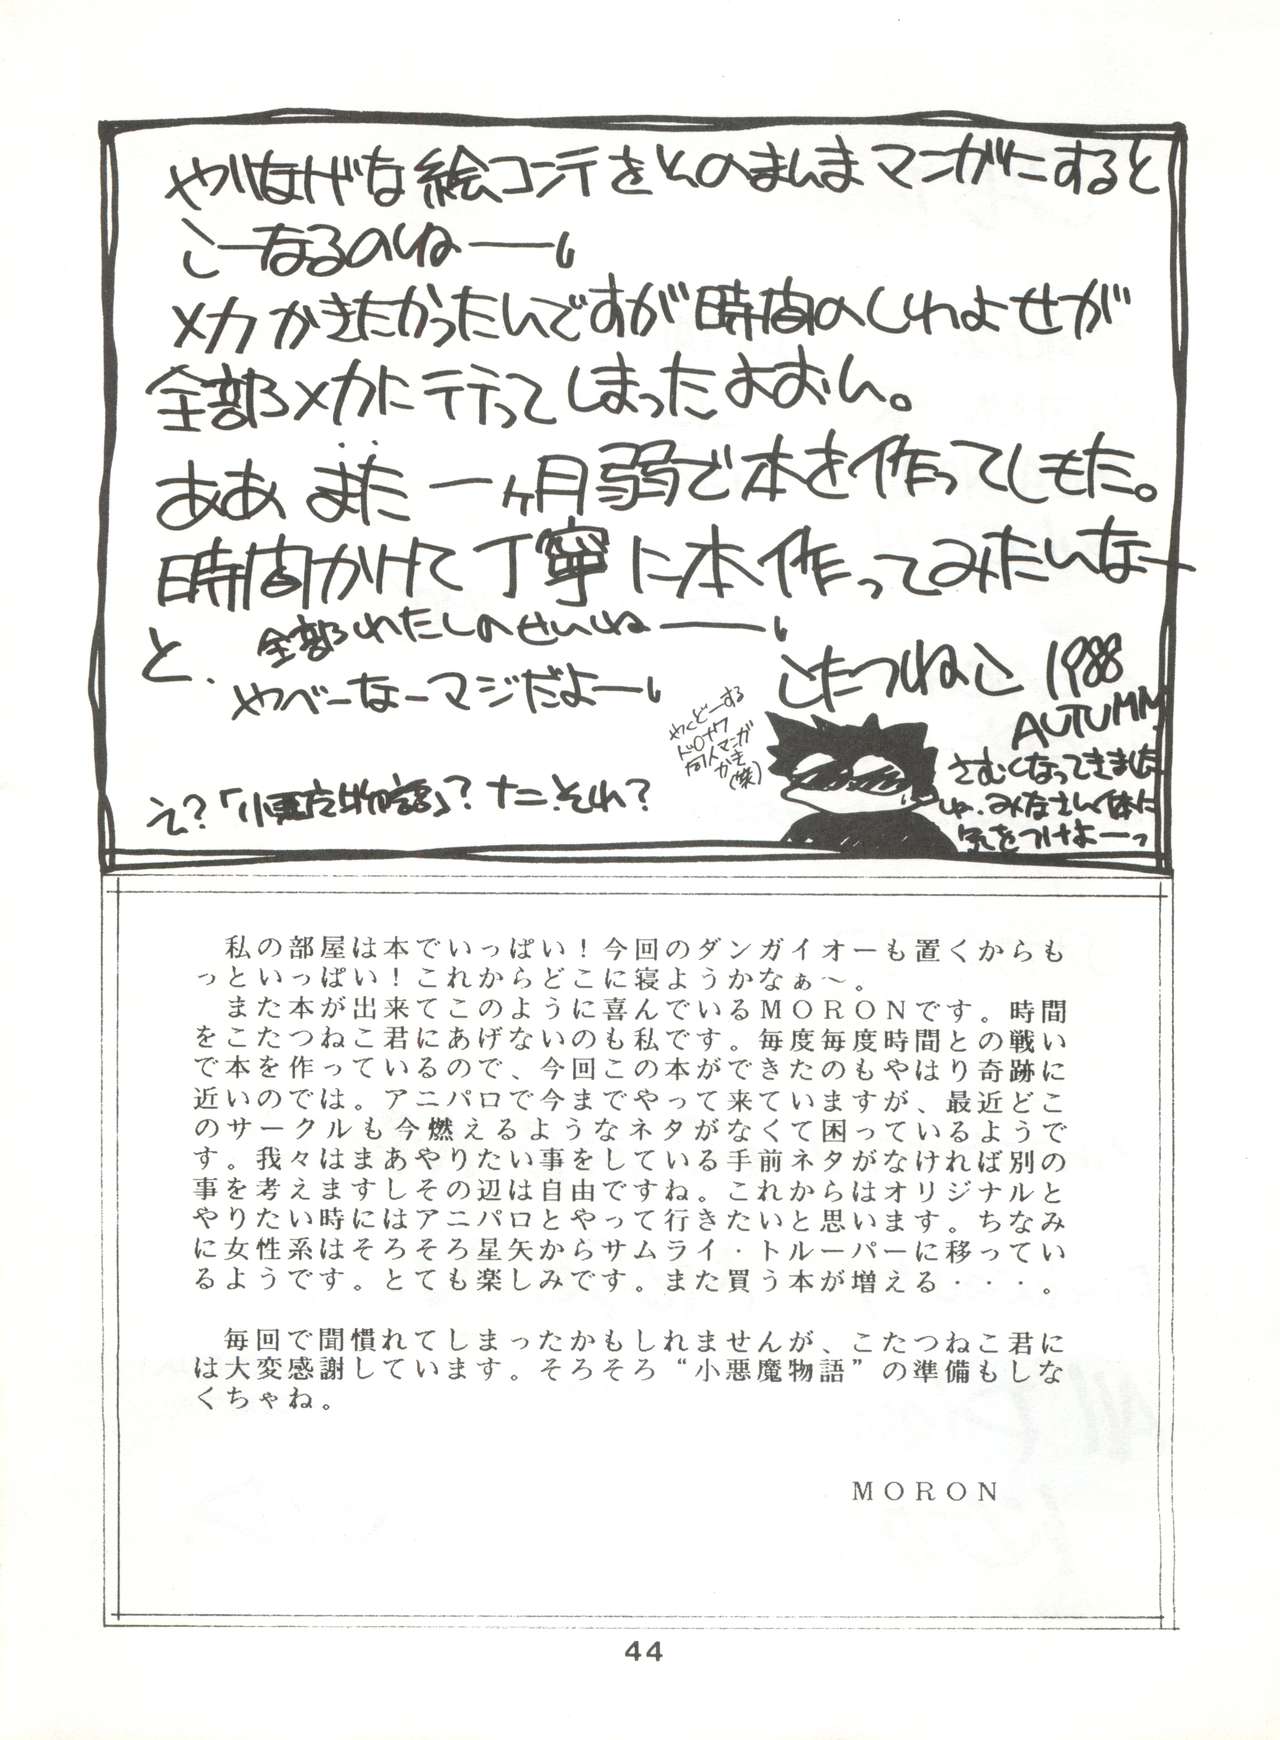 やりなげな絵コンテをそのまんまマンガにすると
こーなるのね——。
メカかきたかったんですが時間のしわよせが
全部メカに行ってしまったよおん。
ああ また 一ヶ月弱で本を作ってしもた。
時間かけて丁寧に本作ってみたいなー
と、全部わたしのせいね——。
やべーなーマジだよー。
こたつねこ 1988
AUTUMN
やくどーする
ドロナワ
同人マンガ
かき
(笑)
さむくなってきました
ね、みなさん体に
気をつけよーっ
え?「小悪魔物語」?ナニ、それ?
私の部屋は本でいっぱい！今回のダンガイオーも置くからも
っといっぱい！これからどこに寝ようかなぁ～。
また本が出来てこのように喜んでいるＭＯＲＯＮです。時間
をこたつねこ君にあげないのも私です。毎度毎度時間との戦い
で本を作っているので、今回この本ができたのもやはり奇跡に
近いのでは。アニパロで今までやって来ていますが、最近どこ
のサークルも今燃えるようなネタがなくて困っているようで
す。我々はまあやりたい事をしている手前ネタがなければ別の
事を考えますしその辺は自由ですね。これからはオリジナルと
やりたい時にはアニパロとやって行きたいと思います。ちなみ
に女性系はそろそろ星矢からサムライ・トルーパーに移ってい
るようです。とても楽しみです。また買う本が増える・・・。
毎回で聞慣れてしまったかもしれませんが、こたつねこ君に
は大変感謝しています。そろそろ“小悪魔物語”の準備もしな
くちゃね。
ＭＯＲＯＮ
44